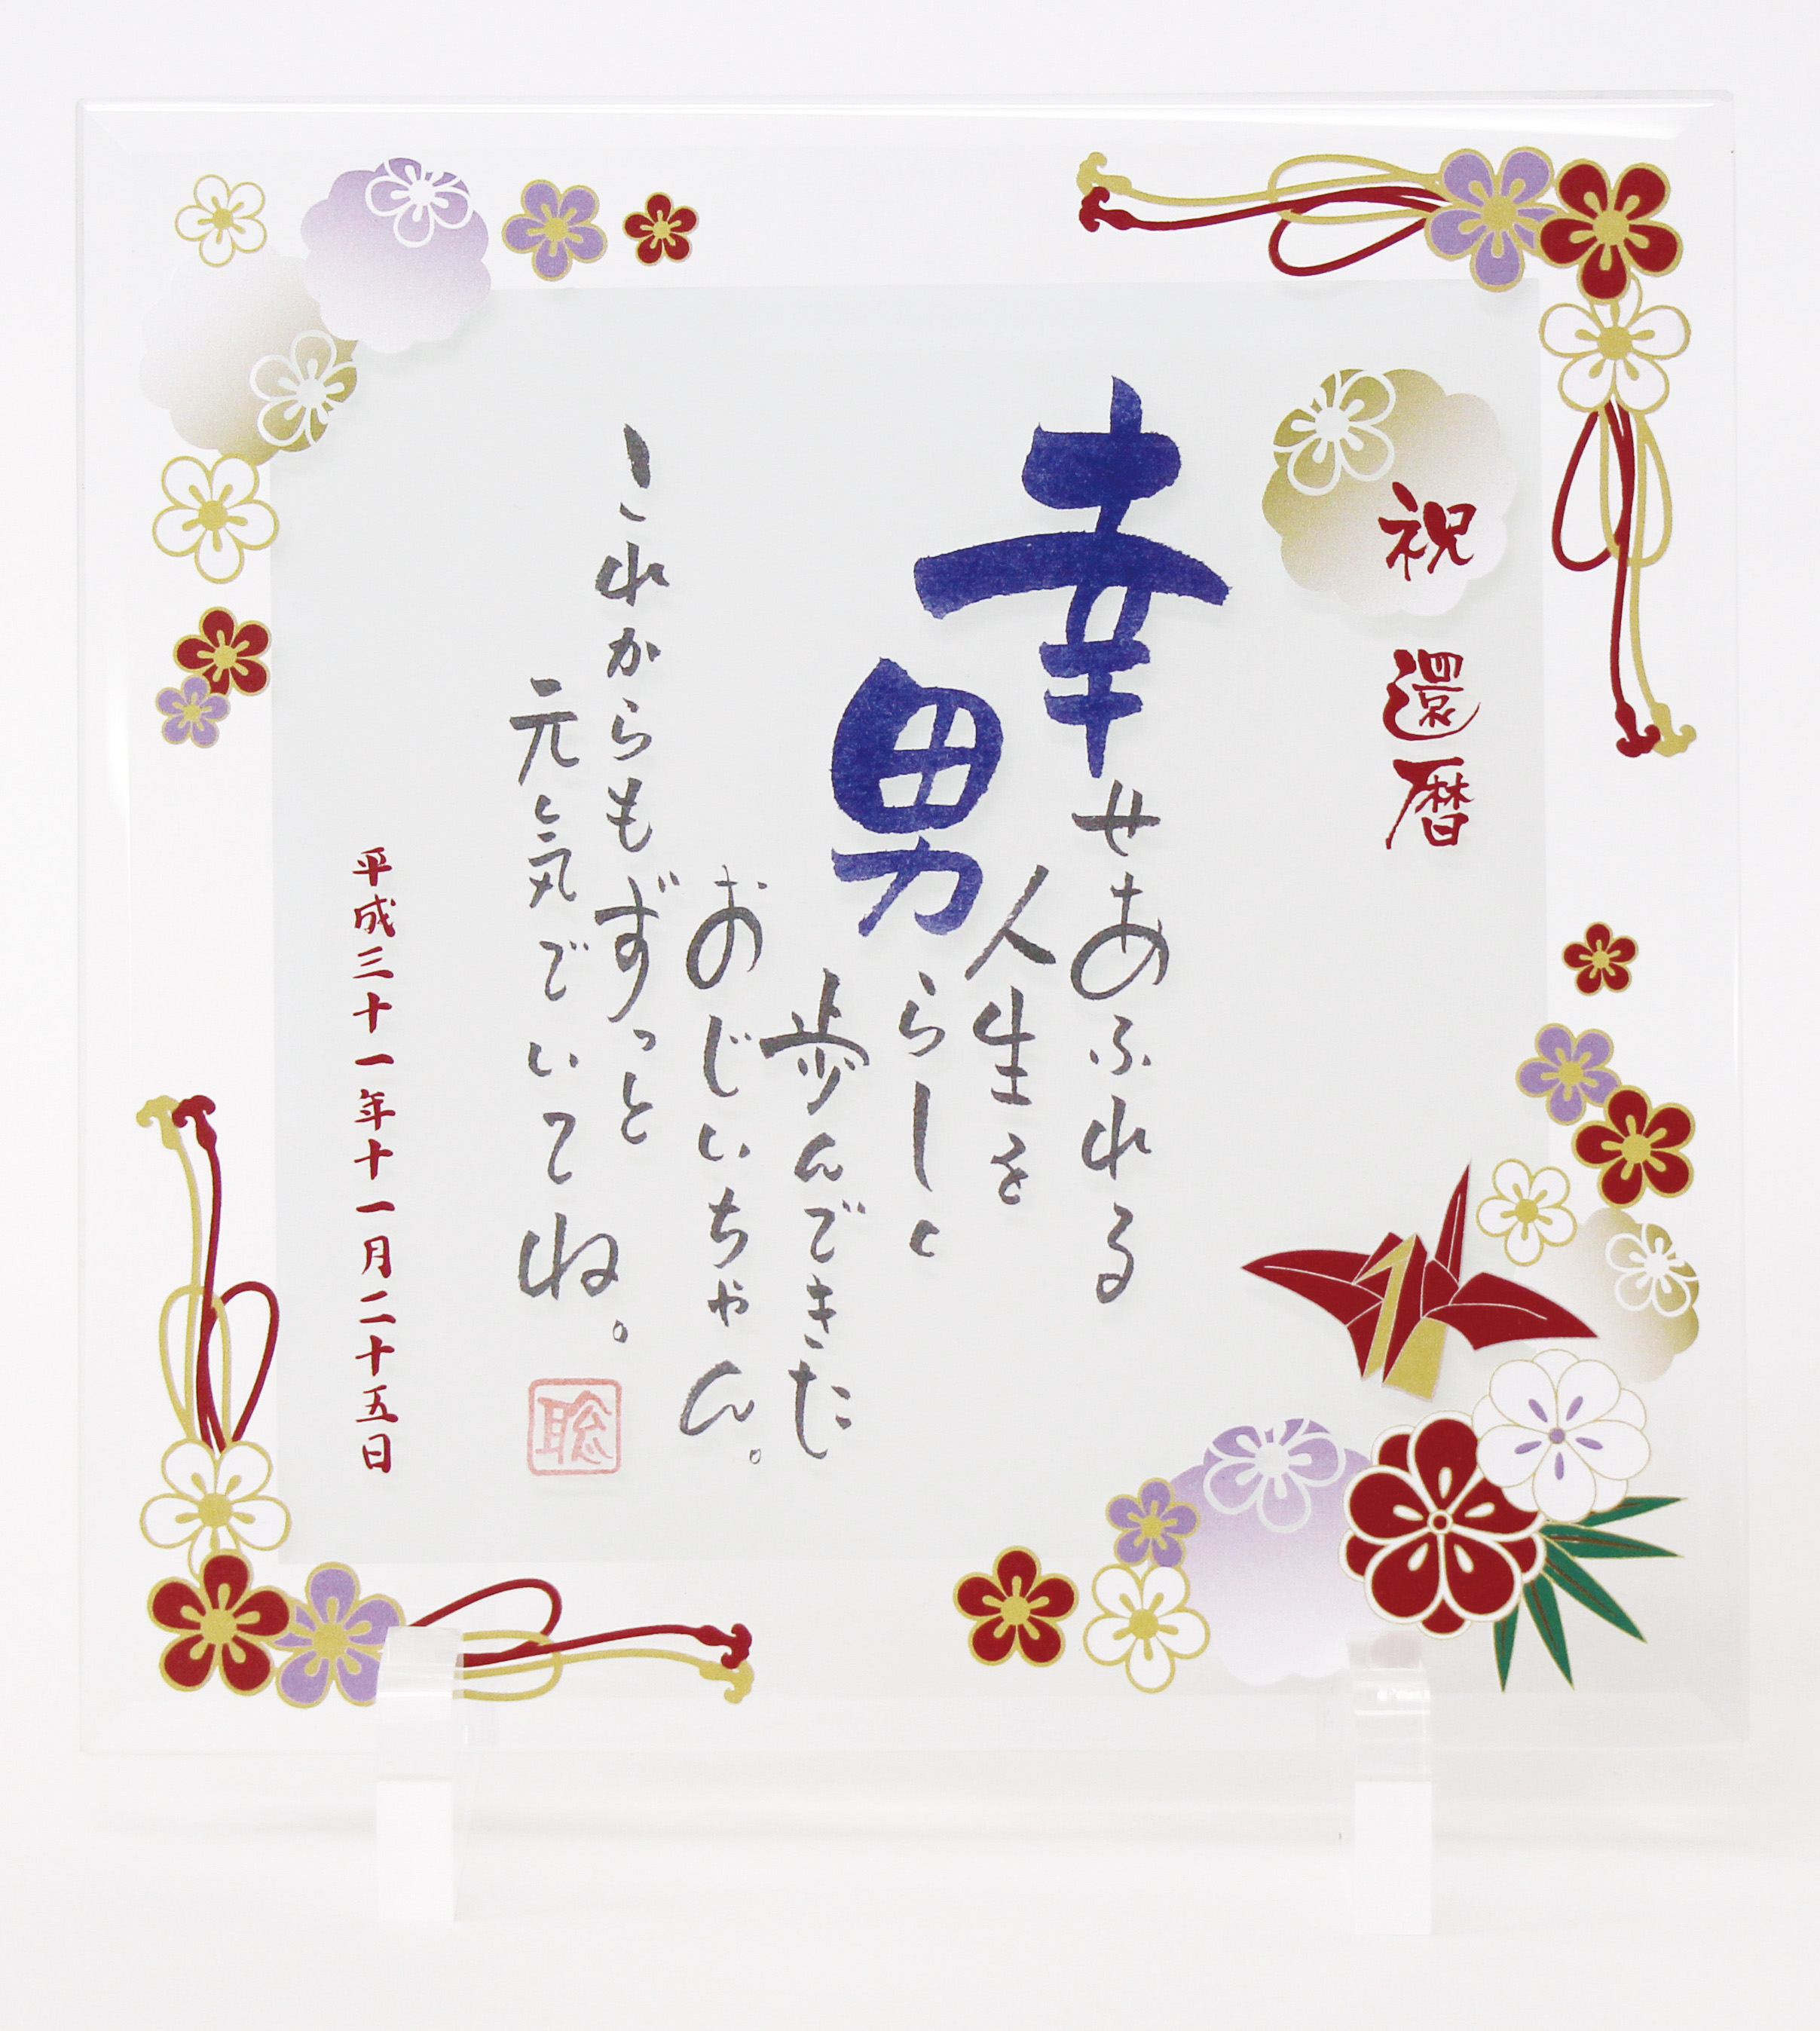 祝 還暦
幸せあふれる
人生を
男らしく
歩んできた
おじいちゃん。
これからもずっと
元気でいてね。
聡
平成三十一年十一月二十五日